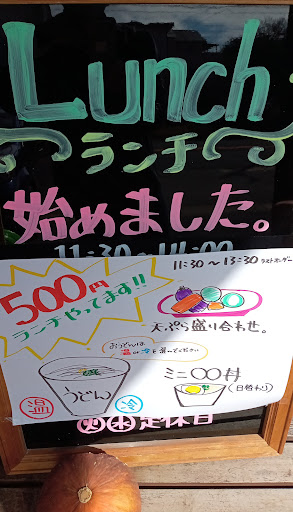 Lunch
ランチ
始めました。
11:30〜14:00
11:30〜13:30 ラストオーダー
500円
ランチやってます!!
天ぷら盛り合わせ。
おうどんは
温か冷を選んでください
うどん
温
冷
ミニ〇〇丼
(日替わり)
定休日